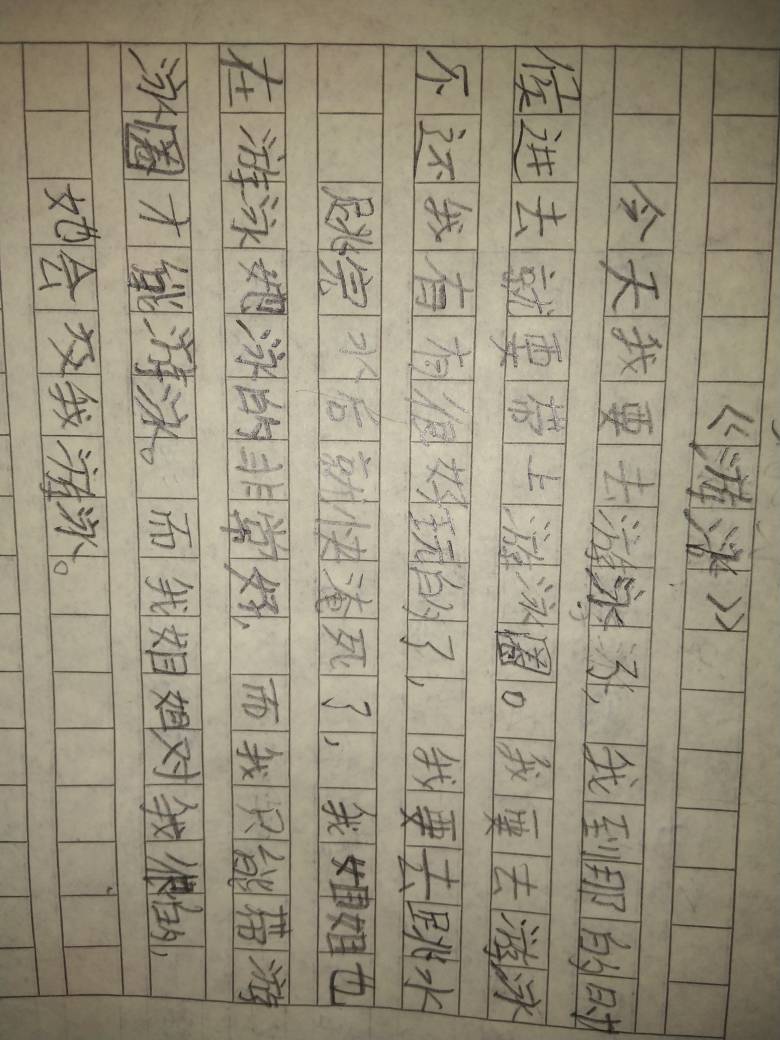 《游泳》
今天我要去游泳了，我到那的时
侯进去就要带上游泳圈。我要去游泳
不过我有有很好玩的了，我要去跳水
跳完水后就快淹死了，我姐姐也
在游泳她泳的非常好，而我只能带游
泳圈才能游泳。而我姐姐对我很好，
她会教我游泳。